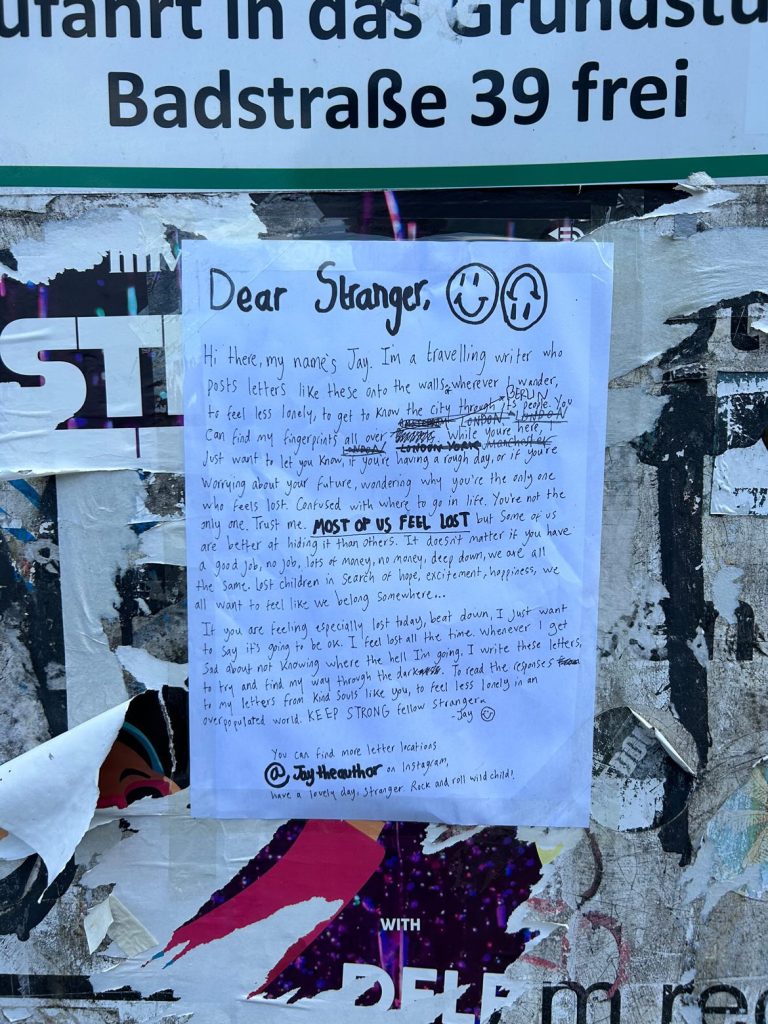 ufahrt in das Grundstü
Badstraße 39 frei
ST
Dear Stranger,
Hi there, my name's Jay. I'm a travelling writer who
posts letters like these onto the walls wherever I wander,
to feel less lonely, to get to know the city through its people. You
BERLIN
LONDON LONDON
can find my fingerprints all over While you're here, I
LONDON YORK Manchester
just want to let you know, if you're having a rough day, or if you're
worrying about your future, wondering why you're the only one
who feels lost. Confused with where to go in life. You're not the
only one. Trust me. MOST OF US FEEL LOST but some of us
are better at hiding it than others. It doesn't matter if you have
a good job, no job, lots of money, no money, deep down, we are all
the same. Lost children in search of hope, excitement, happiness, we
all want to feel like we belong somewhere...
If you are feeling especially lost today, beat down, I just want
to say it's going to be ok. I feel lost all the time. Whenever I get
sad about not knowing where the hell I'm going, I write these letters,
to try and find my way through the dark. To read the responses
to my letters from kind souls like you, to feel less lonely in an
overpopulated world. KEEP STRONG fellow stranger
-Jay
You can find more letter locations
@Jaytheauthor on Instagram,
have a lovely day, stranger. Rock and roll wild child!
WITH